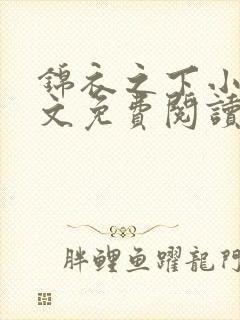 錦衣之下小
文免費閱讀
胖鯉鱼躍龍門